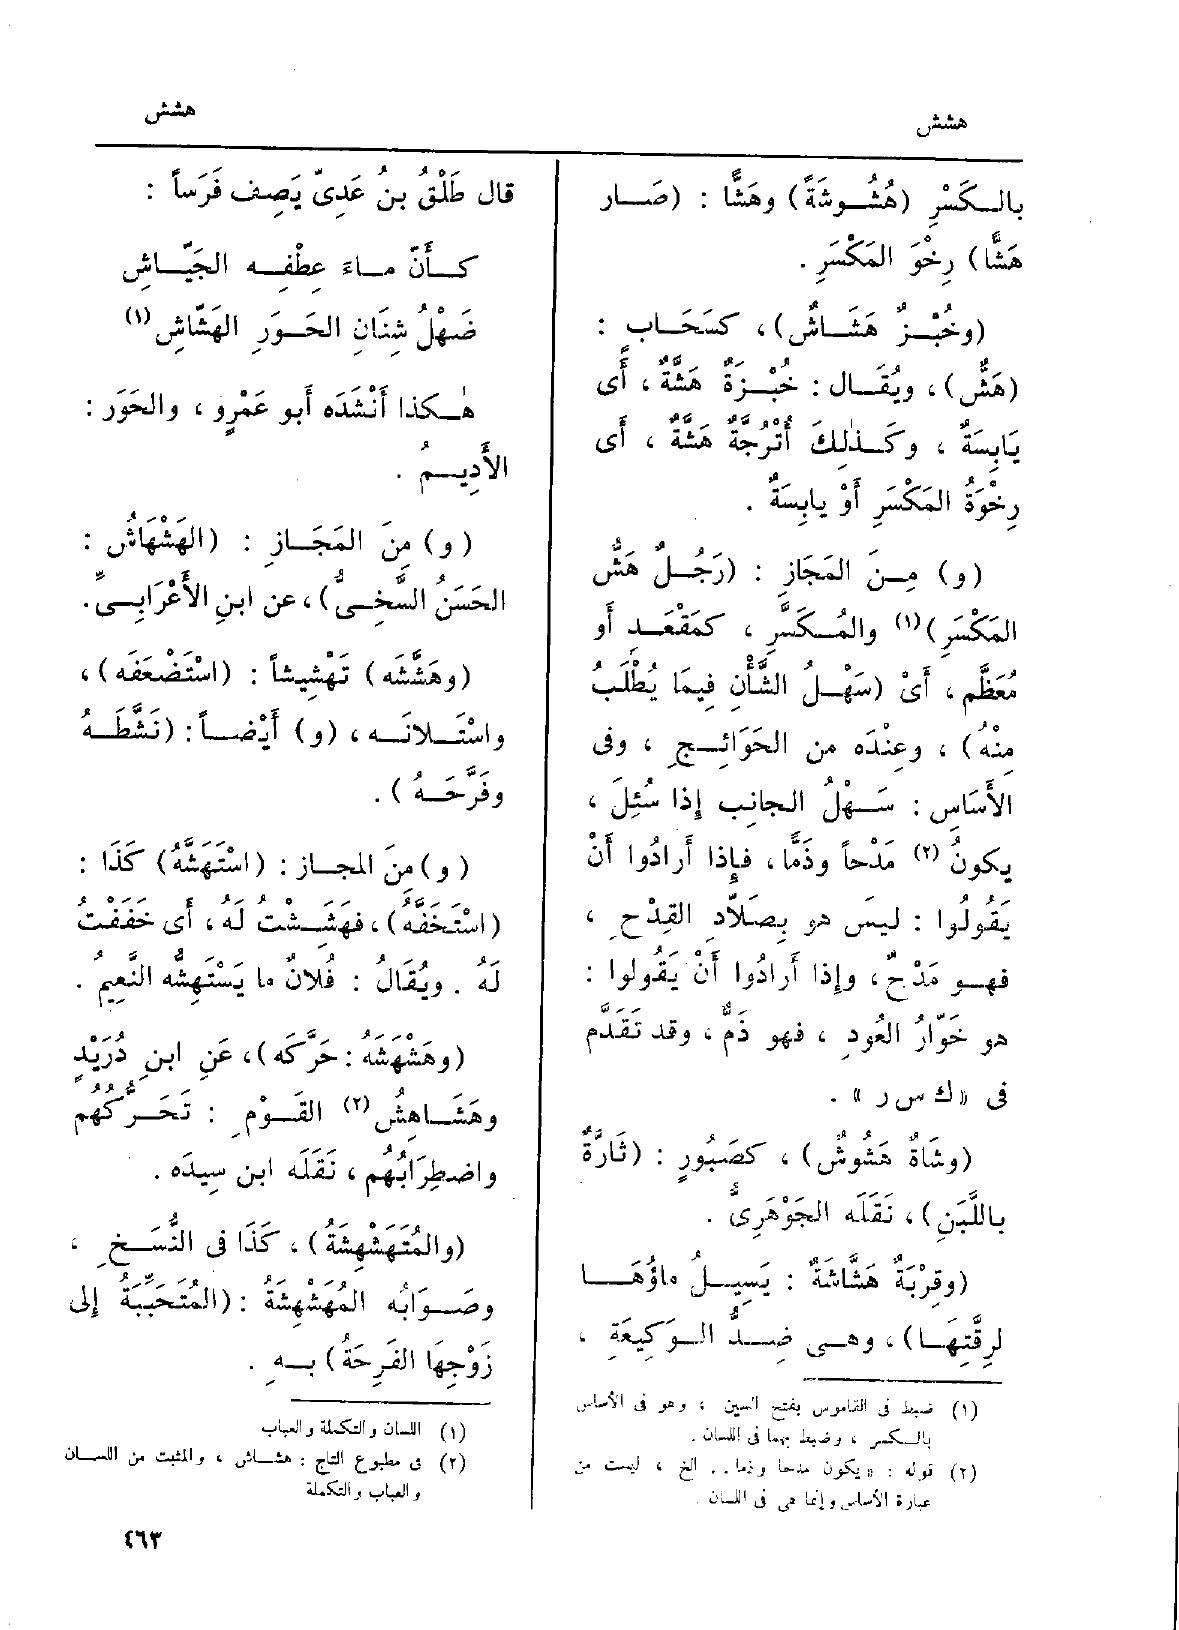 هشش
هشش
بالكَسْرِ (هُشُوشَةً) وهَشًّا : (صَار
هَشًّا) رِخْوَ المَكْسَرِ .
(وخُبْزٌ هَشَاشٌ)، كسَحَاب :
(هَشٌّ)، ويُقَال : خُبْزَةٌ هَشَّةٌ ، أَى
يَابِسَةٌ ، وكَذٰلِكَ أُتْرُجَّةٌ هَشَّةٌ ، أَى
رِخْوَةُ المَكْسَرِ أَوْ يابِسَةٌ .
(و) مِنَ المَجَازِ : (رَجُلٌ هَشُّ
المَكْسَرِ)(١) والمُكَسَّرِ ، كمَقْعَدٍ أَو
مُعَظَّمٍ ، أَىْ (سَهْلُ الشَّأْنِ فِيمَا يُطْلَبُ
مِنْهُ) ، وعِنْدَه من الحَوَائِجِ ، وفى
الأَسَاسِ : سَهْلُ الجانِبِ إِذا سُئِلَ ،
يكونُ (٢) مَدْحاً وذَمًّا، فإِذا أَرادُوا أَنْ
يَقُولُوا : ليسَ هو بِصَلاَّدِ القِدْحِ ،
فهو مَدْحٌ، وإِذا أَرادُوا أَنْ يَقُولوا :
هو خَوّارُ العُودِ ، فهو ذَمٌّ ، وقد تَقَدَّم
فى «ك س ر» .
(وشَاةٌ هَشُوشٌ) ، كصَبُورٍ : (ثَارَّةٌ
باللَّبَنِ)، نَقَلَه الجَوْهَرِىُّ .
(وقِرْبَةٌ هَشَّاشَةٌ : يَسِيلُ ماؤُهَا
لرِقَّتِهَا)، وهى ضِدُّ الوَكِيعَةِ ،
(١) ضبط فى القاموس بفتح السين ، وهو فى الأساس
بالكسر ، وضبط بهما فى اللسان .
(٢) قوله : «يكون مدحا وذما .. الخ ، ليست من
عبارة الأساس وإنما هى فى اللسان .
قال طَلْقُ بنُ عَدِىٍّ يَصِف فَرَساً :
كأَنّ ماءَ عِطْفِه الجَيّاشِ
ضَهْلُ شِنَانِ الحَوَرِ الهَشّاشِ(١)
هٰكذا أَنْشَدَه أَبو عَمْرٍو ، والحَوَر :
الأَدِيمُ .
(و) مِنَ المَجَازِ : (الهَشْهَاشُ :
الحَسَنُ السَّخِىُّ)، عن ابنِ الأَعْرَابِىّ.
(وهَشَّشَه) تَهْشِيشاً : (اسْتَضْعَفَه)،
واسْتَلانَه ، (و) أَيْضاً : (نَشَّطَهُ
وفَرَّحَهُ) .
(و)مِنَ المجاز : (اسْتَهَشَّهُ) كَذَا :
(اسْتَخَفَّهُ)، فهَشَِشْتُ لَهُ ، أَى خَفَفْتُ
لَهُ . ويُقَالُ : فُلانٌ ما يَسْتَهِشُّه النَّعِيمُ .
(وهَشْهَشَهُ : حَرَّكَه)، عَنِ ابنِ دُرَيْدٍ
وهَشَاهِشُ(٢) القَوْمِ : تَحَرُّكُهُم
واضطِرَابُهُم ، نَقَلَه ابن سِيدَه .
(والمُتَهَشْهِشَةُ) ، كَذَا فى النُّسَخِ ،
وصَوَابُه المُهَشْهِشَةُ : (المُتَحَبِّبَةُ إِلى
زَوْجِهَا الفَرِحَةُ) بهِ .
(١) اللسان والتكملة والعباب
(٢) فى مطبوع التاج : هشاش ، والمثبت من اللسان
والعباب والتكملة
٤٦٣